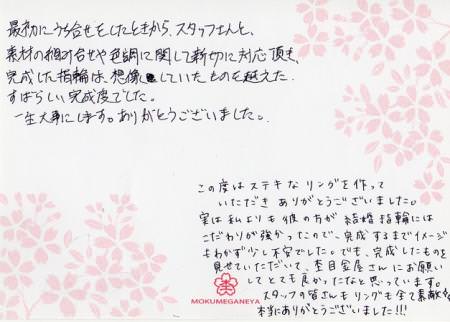 最初にうち合せをしたときから、スタッフさんと、
素材の組み合せや色調に関して新切に対応頂き、
完成した指輪は、想像していたものを越えた
すばらしい完成度でした。
一生大事にします。ありがとうございました。
この度はステキなリングを作って
いただきありがとうございました。
実は私よりも彼の方が結婚指輪には
こだわりが強かったので、完成するまでイメージ
もわかず少し不安でした。でも、完成したものを
見せていただいて、杢目金屋さんにお願い
してとても良かったなと思っています。
スタッフの皆さんもリングも全て素敵で
本当にありがとうございました!!!
MOKUMEGANEYA